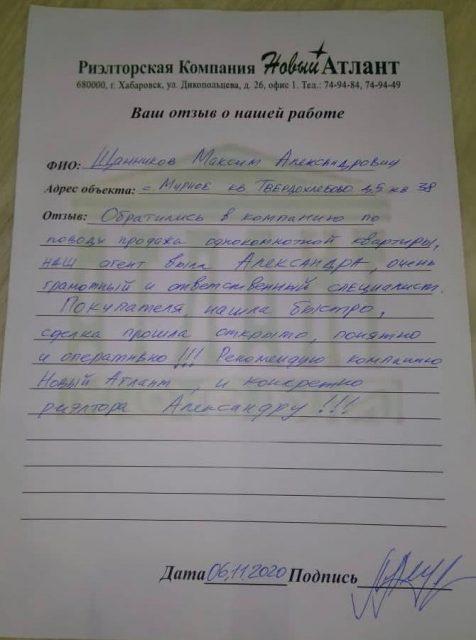 Риэлторская Компания Новый Атлант
680000, г. Хабаровск, ул. Дикопольцева, д. 26, офис 1. Тел.: 74-94-84, 74-94-49
Ваш отзыв о нашей работе
ФИО: Щанников Максим Александрович
Адрес объекта: с Мирное кв Твердохлебово д,5 кв 38
Отзыв: Обратились в компанию по
поводу продажа однокомнотной квартиры,
наш агент была Александра, очень
грамотный и ответственный специалист.
Покупателя, нашла быстро,
сделка прошла открыто, понятно
и оперативно!!! Рекомендую компанию
Новый Атлант, и конкретно
риэлтора Александру!!!
Дата 06,11,2020 Подпись